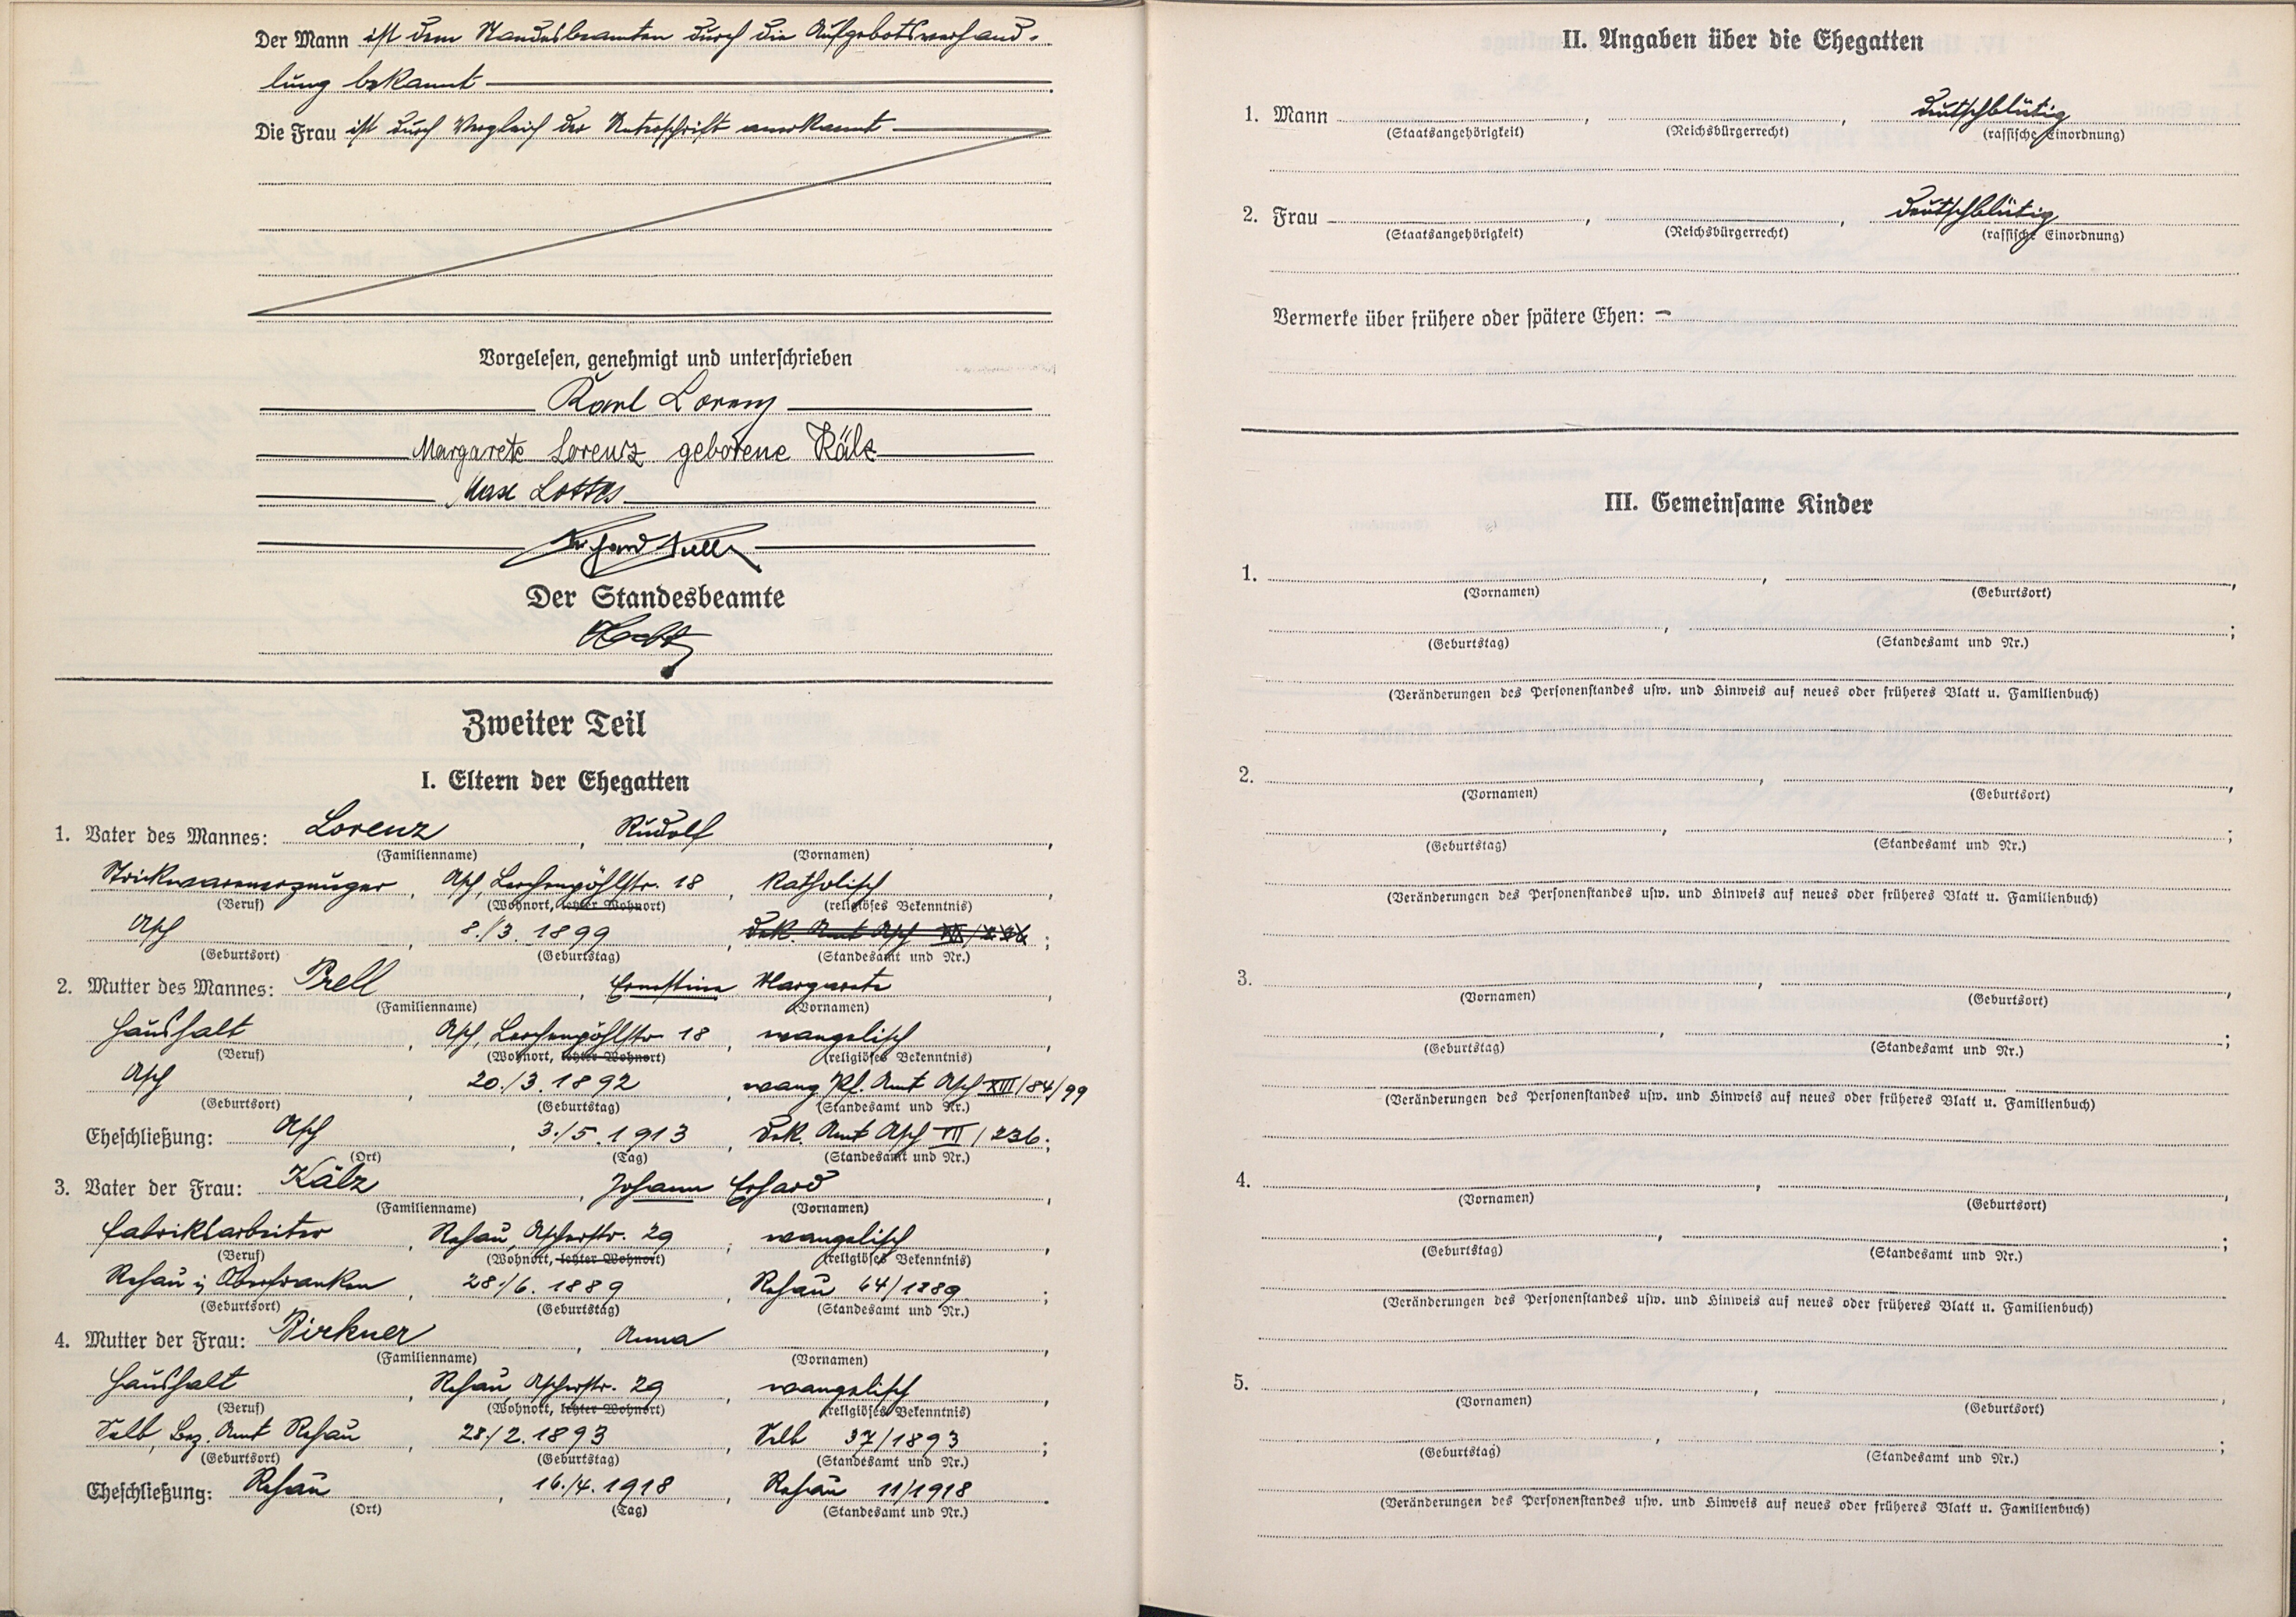 Der Mann ist dem Standesbeamten durch die Aufgebotsverhand-
lung bekannt
Die Frau ist durch Vergleich der Unterschrift anerkannt
Vorgelesen, genehmigt und unterschrieben
Karl Lorenz
Margarete Lorenz geborene Kälz
Max Lottes
Der Standesbeamte
Zweiter Teil
I. Eltern der Ehegatten
1. Vater des Mannes: Lorenz, Rudolf,
(Familienname) (Vornamen)
Strickwarenerzeuger, Asch, Lerchenpöhlstr. 18, katholisch,
(Beruf) (Wohnort, letzter Wohnort) (religiöses Bekenntnis)
Asch, 8./3. 1899, Dek. Amt Asch;
(Geburtsort) (Geburtstag) (Standesamt und Nr.)
2. Mutter des Mannes: Prell, Ernestine Margarete,
(Familienname) (Vornamen)
Haushalt, Asch, Lerchenpöhlstr. 18, evangelisch,
(Beruf) (Wohnort, letzter Wohnort) (religiöses Bekenntnis)
Asch, 20./3. 1892, evang. Pf. Amt Asch XIII/84/99
(Geburtsort) (Geburtstag) (Standesamt und Nr.)
Eheschließung: Asch, 3./5. 1913, Dek. Amt Asch III/236;
(Ort) (Tag) (Standesamt und Nr.)
3. Vater der Frau: Kälz, Johann Erhard,
(Familienname) (Vornamen)
Fabrikarbeiter, Rehau, Ascherstr. 29, evangelisch,
(Beruf) (Wohnort, letzter Wohnort) (religiöses Bekenntnis)
Rehau i/ Oberfranken, 28./6. 1889, Rehau 64/1889;
(Geburtsort) (Geburtstag) (Standesamt und Nr.)
4. Mutter der Frau: Pirkner, Anna,
(Familienname) (Vornamen)
Haushalt, Rehau, Ascherstr. 29, evangelisch,
(Beruf) (Wohnort, letzter Wohnort) (religiöses Bekenntnis)
Selb, Bez. Amt Rehau, 28./2. 1893, Selb 37/1893;
(Geburtsort) (Geburtstag) (Standesamt und Nr.)
Eheschließung: Rehau, 16./4. 1918, Rehau 11/1918.
(Ort) (Tag) (Standesamt und Nr.)
II. Angaben über die Ehegatten
1. Mann , , deutschblütig
(Staatsangehörigkeit) (Reichsbürgerrecht) (rassische Einordnung)
2. Frau , , deutschblütig
(Staatsangehörigkeit) (Reichsbürgerrecht) (rassische Einordnung)
Vermerke über frühere oder spätere Ehen: –
III. Gemeinsame Kinder
1. , ,
(Vornamen) (Geburtsort)
, ;
(Geburtstag) (Standesamt und Nr.)
(Veränderungen des Personenstandes usw. und Hinweis auf neues oder früheres Blatt u. Familienbuch)
2. , ,
(Vornamen) (Geburtsort)
, ;
(Geburtstag) (Standesamt und Nr.)
(Veränderungen des Personenstandes usw. und Hinweis auf neues oder früheres Blatt u. Familienbuch)
3. , ,
(Vornamen) (Geburtsort)
, ;
(Geburtstag) (Standesamt und Nr.)
(Veränderungen des Personenstandes usw. und Hinweis auf neues oder früheres Blatt u. Familienbuch)
4. , ,
(Vornamen) (Geburtsort)
, ;
(Geburtstag) (Standesamt und Nr.)
(Veränderungen des Personenstandes usw. und Hinweis auf neues oder früheres Blatt u. Familienbuch)
5. , ,
(Vornamen) (Geburtsort)
, ;
(Geburtstag) (Standesamt und Nr.)
(Veränderungen des Personenstandes usw. und Hinweis auf neues oder früheres Blatt u. Familienbuch)